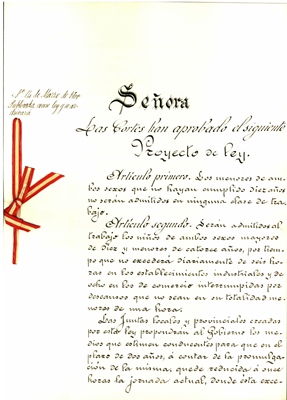 Sª 14 de Marzo de 1900
Publíquese como ley y se archivará
Señora
Las Cortes han aprobado el siguiente
Proyecto de ley.
Artículo primero. Los menores de am-
bos sexos que no hayan cumplido diez años
no serán admitidos en ninguna clase de tra-
bajo.
Artículo segundo. Serán admitidos al
trabajo los niños de ambos sexos mayores
de diez y menores de catorce años, por tiem-
po que no excederá diariamente de seis ho-
ras en los establecimientos industriales y de
ocho en los de comercio interrumpidas por
descansos que no sean en su totalidad me-
nores de una hora.
Las Juntas locales y provinciales creadas
por esta ley propondrán al Gobierno los me-
dios que estimen conducentes para que en el
plazo de dos años, á contar de la promulga-
ción de la misma, quede reducida á once
horas la jornada actual, donde esta exce-